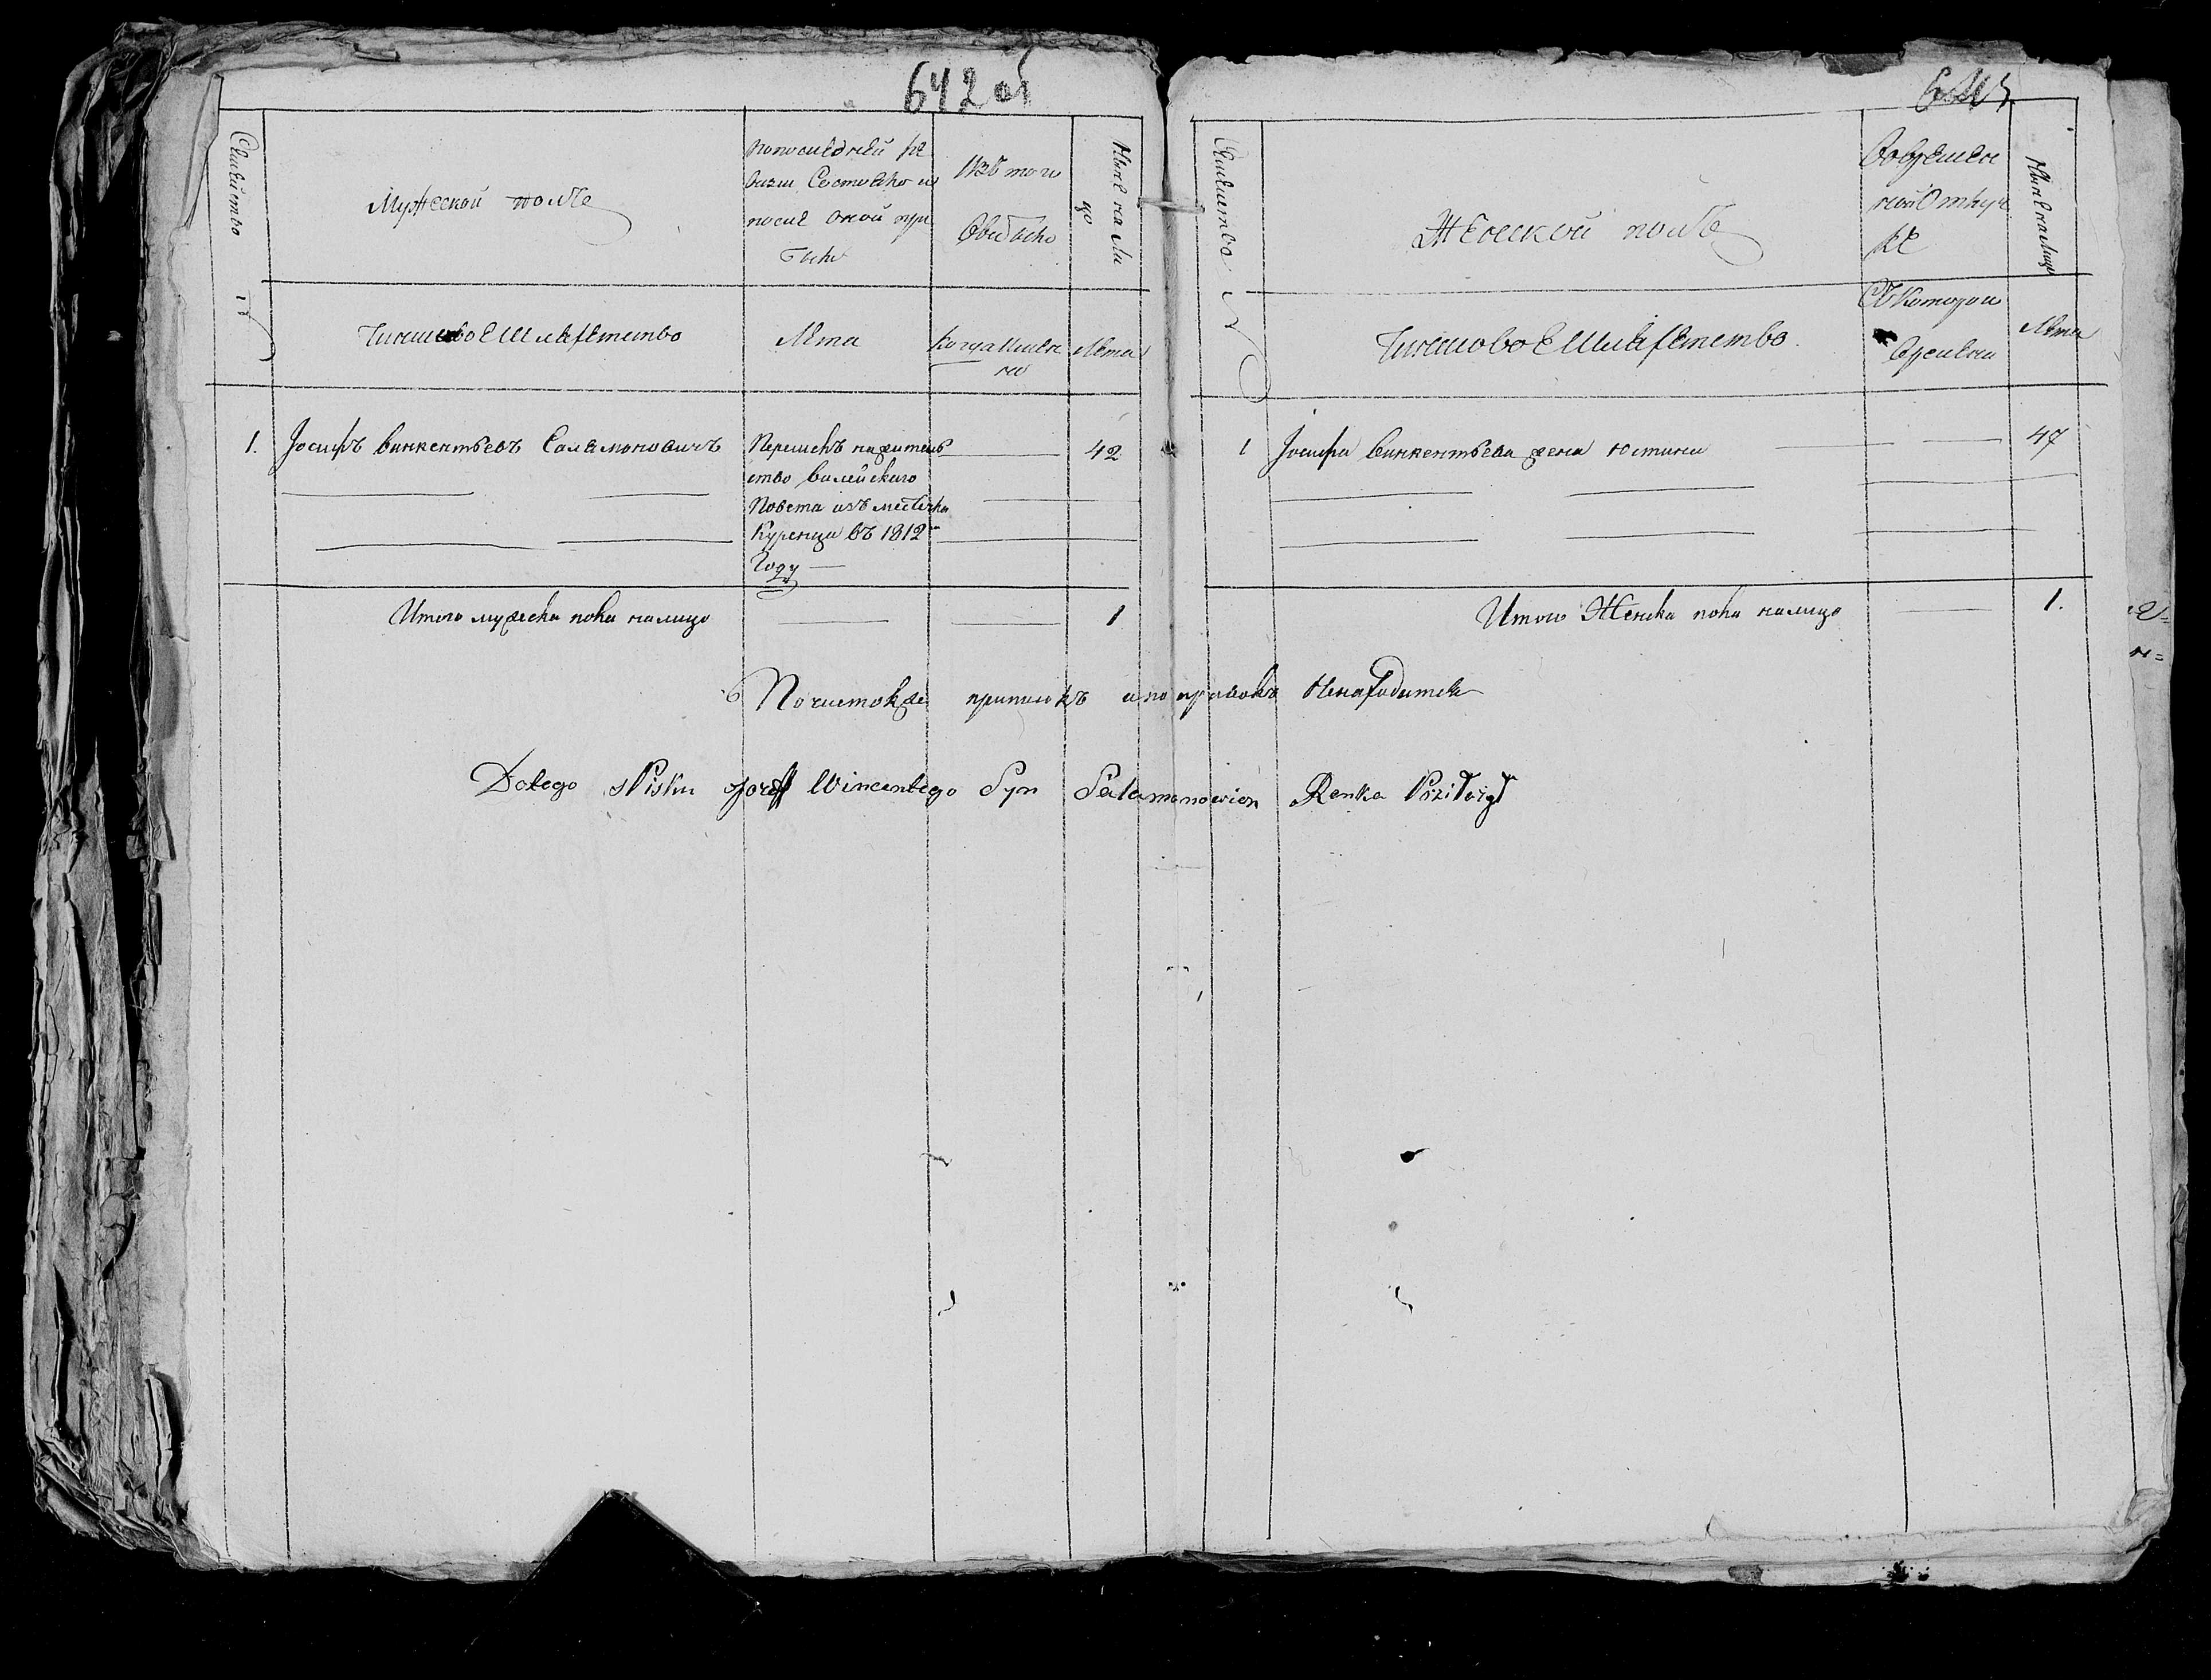 642 об
643
Семейство
Мужеской полъ
По последней ре
визіи Состояло и
после оной при
было
Изъ того
Овибыло
Ныне на ли
цо
№
Чиншовое Шляхетство
Лета
Когда имен
но
Лета
1. Іосифъ Винкентьевъ Саламоновичъ
Перешелъ на житель
ство Вилейскаго
Повета изъ местечка
Куренца въ 1812м
Году
42
Итого мужеска пола налицо 1
Семейство
Женской полъ
Вовремен
ной отлуч
ке
Ныне на лицо
№
Чиншовое Шляхетство.
Съ Котораго
Времени
Лета
1 Іосифа Винкентьева жена Юстина 47
Итого Женска пола налицо 1.
Почистокъ же приписокъ и поправокъ Ненаходится
Dotego sPisku Jozeff Wincentego Syn Salamonowicz Renka Przitożył